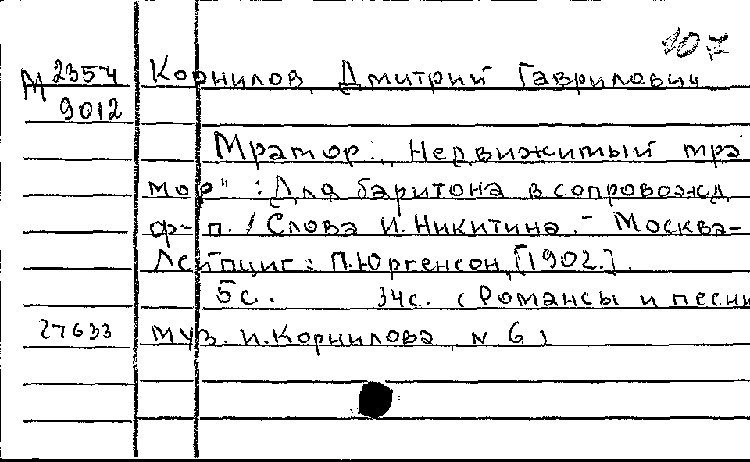 10,7
М 2354
9012
Корнилов, Дмитрий Гаврилович
Мрамор: „Недвижимый мра
мор" : Для баритона в сопровожд
ф-п. / Слова И. Никитина. - Москва-
Лейпциг: П. Юргенсон, [1902.].
5с. 34с. (Романсы и песни
27633 муз. и. Корнилова, N 6)